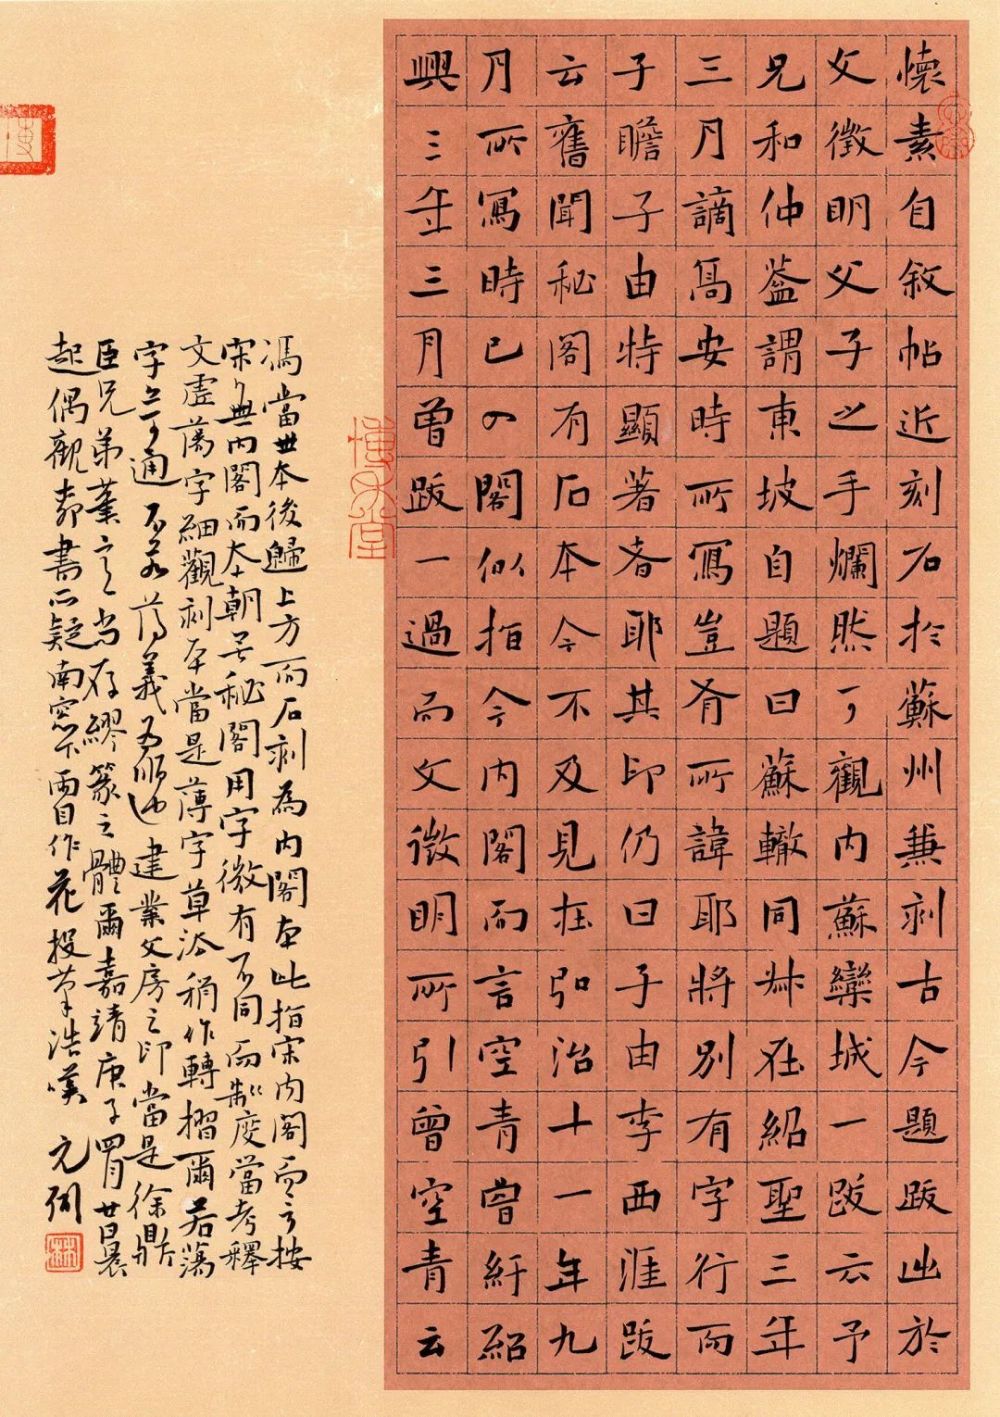 懷素自敘帖近刻石於蘇州兼刻古今題跋出於
文徵明父子之手爛然可觀內蘇欒城一跋云予
兄和仲葢謂東坡自題曰蘇轍同叔在紹聖三年
三月謫高安時所寫豈有所諱耶將別有字行而
子瞻子由特顯著者耶其印仍曰子由李西涯跋
云舊聞秘閣有石本今不及見在弘治十一年九
月所寫時已入閣似指今內閣而言空青曾紆紹
興三年三月曾跋一過而文徵明所引曾空青云
馮當世本後歸上方而石刻為內閣本此指宋內閣而言按
宋無內閣而本朝無秘閣用字微有不同而制度當考釋
文虛蕩字細觀刻本當是薄字草法稍作轉摺爾若蕩
字亦可通不若薄義為順也建業文房之印當是徐鼎
臣兄弟輩尚存繆篆之體爾嘉靖庚子月廿日晨
起偶觀素書所疑南窗下作花投筆浩嘆 元